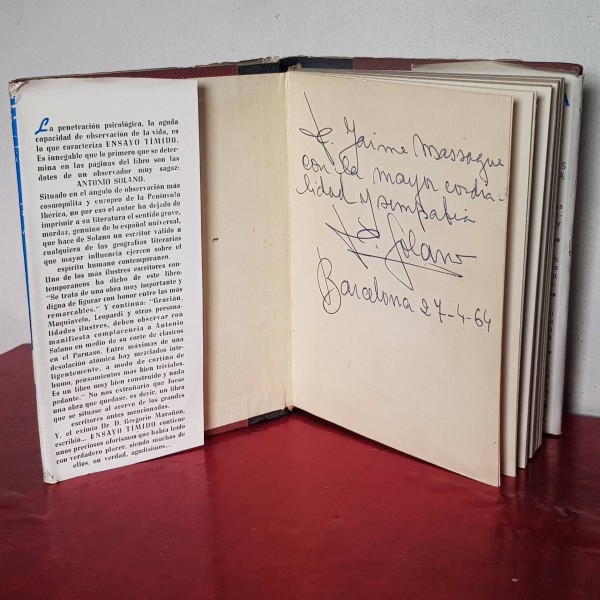 La penetración psicológica, la aguda
capacidad de observación de la vida, es
lo que caracteriza ENSAYO TÍMIDO.
Es innegable que lo primero que se deter-
mina en las páginas del libro son las
dotes de un observador muy sagaz:
ANTONIO SOLANO.
Situado en el ángulo de observación más
cosmopolita y europeo de la Península
Ibérica, no por eso el autor ha dejado de
imprimir a su literatura el sentido grave,
mordaz, genuino de lo español universal,
que hace de Solano un escritor válido a
cualquiera de las geografías literarias
que mayor influencia ejercen sobre el
espíritu humano contemporáneo.
Uno de los más ilustres escritores con-
temporáneos ha dicho de este libro:
"Se trata de una obra muy importante y
digna de figurar con honor entre las más
remarcables." Y continúa: "Gracián,
Maquiavelo, Leopardi y otras persona-
lidades ilustres, deben observar con
manifiesta complacencia a Antonio
Solano en medio de su corte de clásicos
en el Parnaso. Entre máximas de una
desolación atómica hay mezclados inte-
ligentemente, a modo de cortina de
humo, pensamientos más bien triviales.
Es un libro muy bien construido y nada
pedante." No nos extrañaría que fuese
una obra que quedase, es decir, un libro
que se situase al acervo de los grandes
escritores antes mencionados.
Y, el eximio Dr. D. Gregorio Marañón,
escribió... ENSAYO TÍMIDO contiene
unos preciosos aforismos que había leído
con verdadero placer, siendo muchos de
ellos, en verdad, agudísimos...
Jaime Massague
con la mayor cordia-
lidad y simpatía
Solano
Barcelona 27-4-64